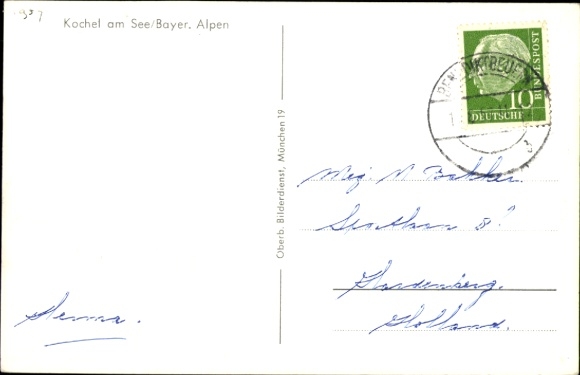 957
Kochel am See/Bayer. Alpen
BUNDESPOST
10
DEUTSCHE
3
Oberb. Bilderdienst, München 19
Mej. N Bakker.
8
Hardenberg.
Holland.
Herma.